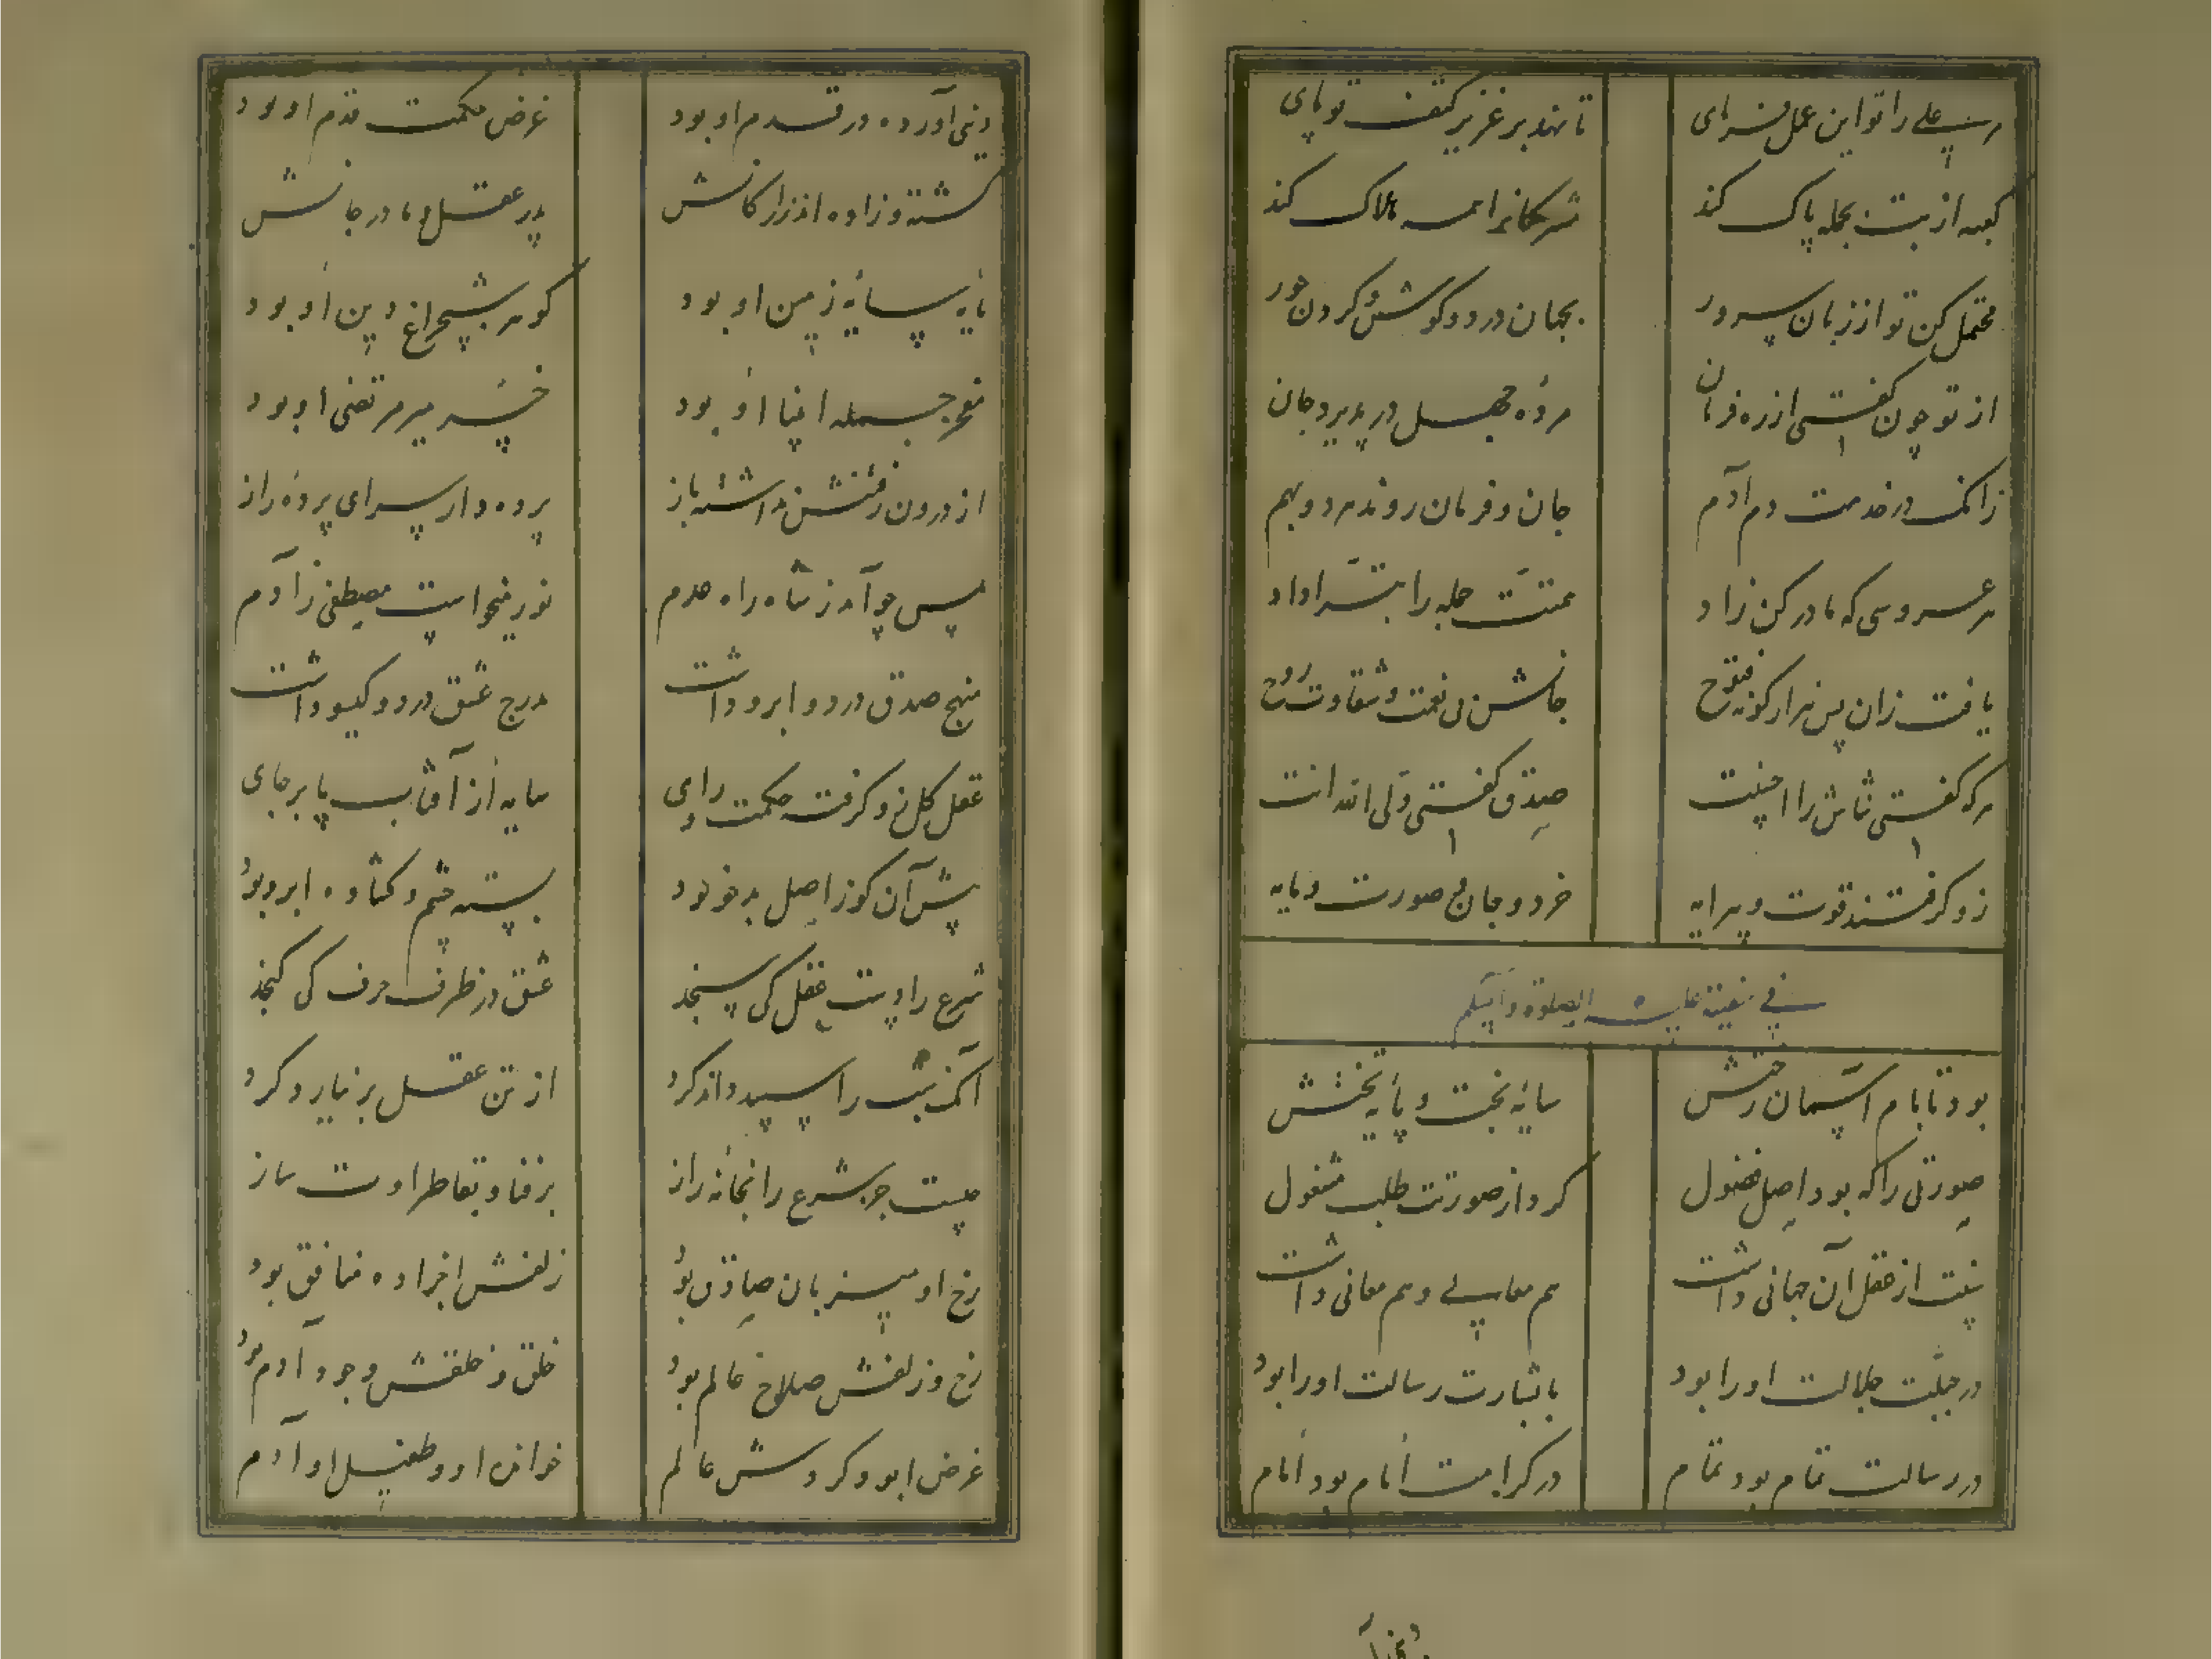 مر علی را تو این عمل فرمای تا نهد بر عزیز کتف تو پای
کعبه از بت بجمله پاک کند مشرکانرا همه هلاک کند
محتمل کن تو از زبان سرور بجهان در دو گوش و گردن حور
از تو چون گفتی از ره فرمان مرده جهل در پذیرد جان
زانک در خدمت دم آدم جان و فرمان روند هر دو بهم
هر عروسی که مادر کن زاد منتت جمله را بشر او داد
یافت زان پس هزار گونه فتوح جانش بی نعمت و شقاوت روح
هر که گفتی ثناش را احسنت صدق گفتی ولی الله انت
زو گرفتند قوت و پیرایه خرد و جان و صورت و مایه
فی نعته علیه الصلوة والسلم
بود تا بام آسمان رختش سایه بخت و پایه تختش
صورتی را که بود اصل فضول کرد از صورتت طلب مشغول
نیت از عقل آن جهانی داشت هم معالی و هم معانی داشت
در جبلت جلالت او را بود با بشارت رسالت او را بود
در رسالت تمام بود تمام در کرامت امام بود امام
دنیی آورده در قدم او بود غرض حکمت قدم او بود
کشته و زاده اندر ارکانش پدر عقل و مادر جانش
مایه سایه زمین او بود گوهر شبچراغ دین او بود
مفخر جمله انبیا او بود خسر میر مرتضی او بود
از درون رفتنش نداشته باز پرده دار سرای پرده راز
پس چو آمد ز شاه راه عدم نور میخواست مصطفی ز آدم
منهج صدق در دو ابرو داشت مدرج عشق در دو گیسو داشت
عقل کل زو گرفت حکمت و رای سایه از آفتاب پا بر جای
پیش آن کو ز اصل بد خو بود بسته چشم و گشاده ابرو بود
شرع را دست عقل کی سنجد عشق در ظرف حرف کی گنجد
آنک شب را سپید داند کرد از تن عقل بر نیارد گرد
چیست جز شرع را بخانه راز بر فنا و بقا طراوت ساز
رخ او میزبان صادق بود زلفش افزاده منافق بود
رخ و زلفش صلاح عالم بود خلق و خلقش وجود آدم بود
غرض او بود گردش عالم خوانده او و طفیل او آدم